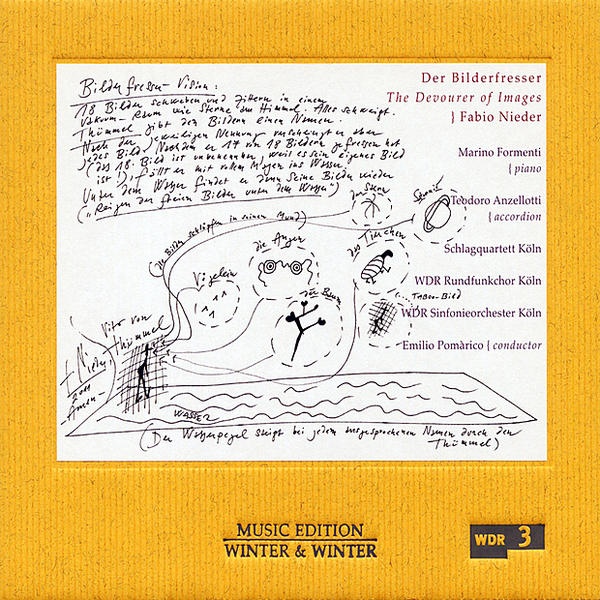 Der Bilderfresser
The Devourer of Images
} Fabio Nieder
Marino Formenti
{ piano
Teodoro Anzellotti
{ accordion
Schlagquartett Köln
WDR Rundfunkchor Köln
WDR Sinfonieorchester Köln
Emilio Pomàrico { conductor
Bilderfresser-Vision:
18 Bilder schweben und zittern in einem
Vakuum-Raum wie Sterne am Himmel. Alles schweigt.
Thümmel gibt den Bildern einen Namen.
Nach der jeweiligen Nennung verschwingt er aber
jedes Bild. Nachdem er 17 von 18 Bildern gefressen hat
(das 18. Bild ist unbenennbar, weil es sein eigenes Bild
ist!), fällt er mit vollem Magen ins Wasser.
Unter dem Wasser findet er dann seine Bilder wieder
("Reigen der freien Bilder unter dem Wasser")
(die Bilder schlüpfen in seinen Mund)
der Stern
Saturn
die Augen
das Tierchen
Vögelein
der Baum
(... Taboo-Bild
Vito von
Thümmel
WASSER
(Der Wasserpegel steigt bei jedem ausgesprochenen Namen durch den
Thümmel)
MUSIC EDITION
WINTER & WINTER
WDR 3